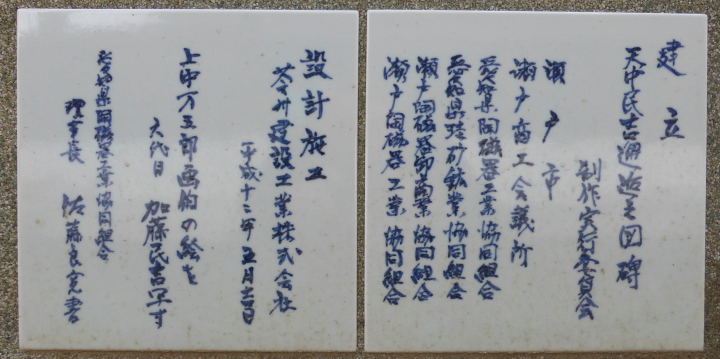 建立
天中民吉邂逅之図碑
制作実行委員会
瀬戸市
瀬戸商工会議所
愛知県陶磁器工業協同組合
愛知県珪砂鉱業協同組合
瀬戸陶磁器卸商業協同組合
瀬戸陶磁器工業協同組合
設計施工
苓州建設工業株式会社
平成十二年五月吉日
上中万五郎画伯の絵を
六代目 加藤民吉写す
愛知県陶磁器工業協同組合
理事長 佐藤良寛書